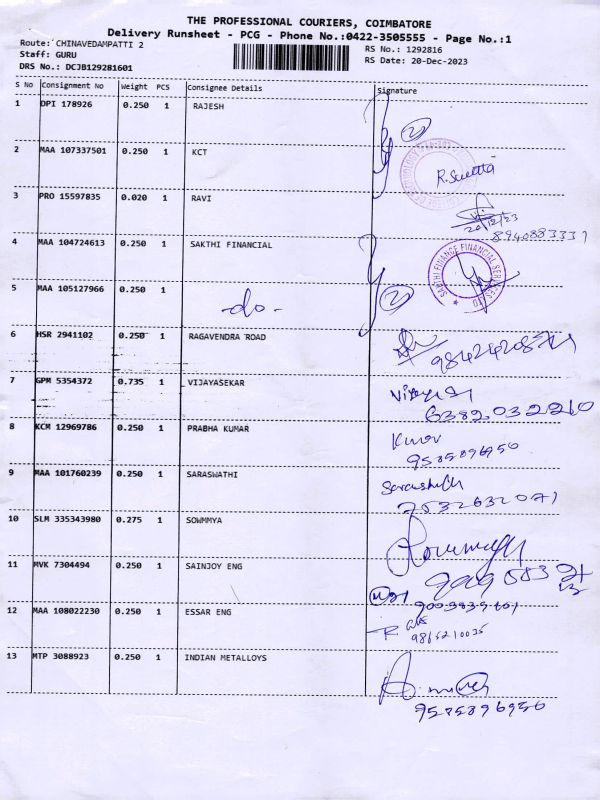 THE PROFESSIONAL COURIERS, COIMBATORE
Delivery Runsheet - PCG - Phone No.:0422-3505555 - Page No.:1
Route: CHINAVEDAMPATTI 2
RS No.: 1292816
Staff: GURU
RS Date: 20-Dec-2023
DRS No.: DCJB129281601
S No Consignment No Weight PCS Consignee Details Signature
1 DPI 178926 0.250 1 RAJESH
2 MAA 107337501 0.250 1 KCT R. Suetta
3 PRO 15597835 0.020 1 RAVI
20/12/23
8940883331
4 MAA 104724613 0.250 1 SAKTHI FINANCIAL
SAKTHI FINANCE FINANCIAL SERVICES LTD
5 MAA 105127966 0.250 1 -do- 2
6 HSR 2941102 0.250 1 RAGAVENDRA ROAD
7 GPM 5354372 0.735 1 VIJAYASEKAR
6382032210
8 KCM 12969786 0.250 1 PRABHA KUMAR Kumar
9585896950
9 MAA 101760239 0.250 1 SARASWATHI
7532632071
10 SLM 335343980 0.275 1 SOWMMYA
11 MVK 7304494 0.250 1 SAINJOY ENG
12 MAA 108022230 0.250 1 ESSAR ENG
9865210035
13 MTP 3088923 0.250 1 INDIAN METALLOYS
9585896950